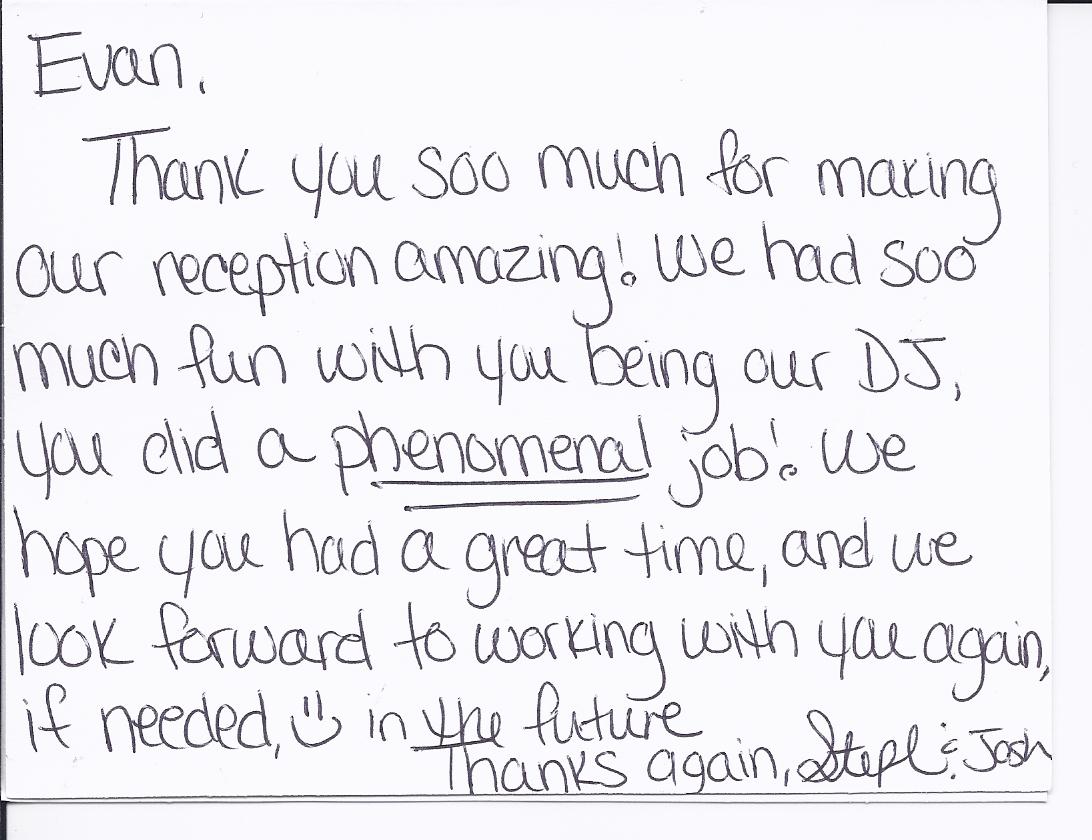 Evan,
Thank you soo much for making
our reception amazing! We had soo
much fun with you being our DJ,
you did a phenomenal job! We
hope you had a great time, and we
look forward to working with you again,
if needed, in the future
Thanks again, Steph & Josh